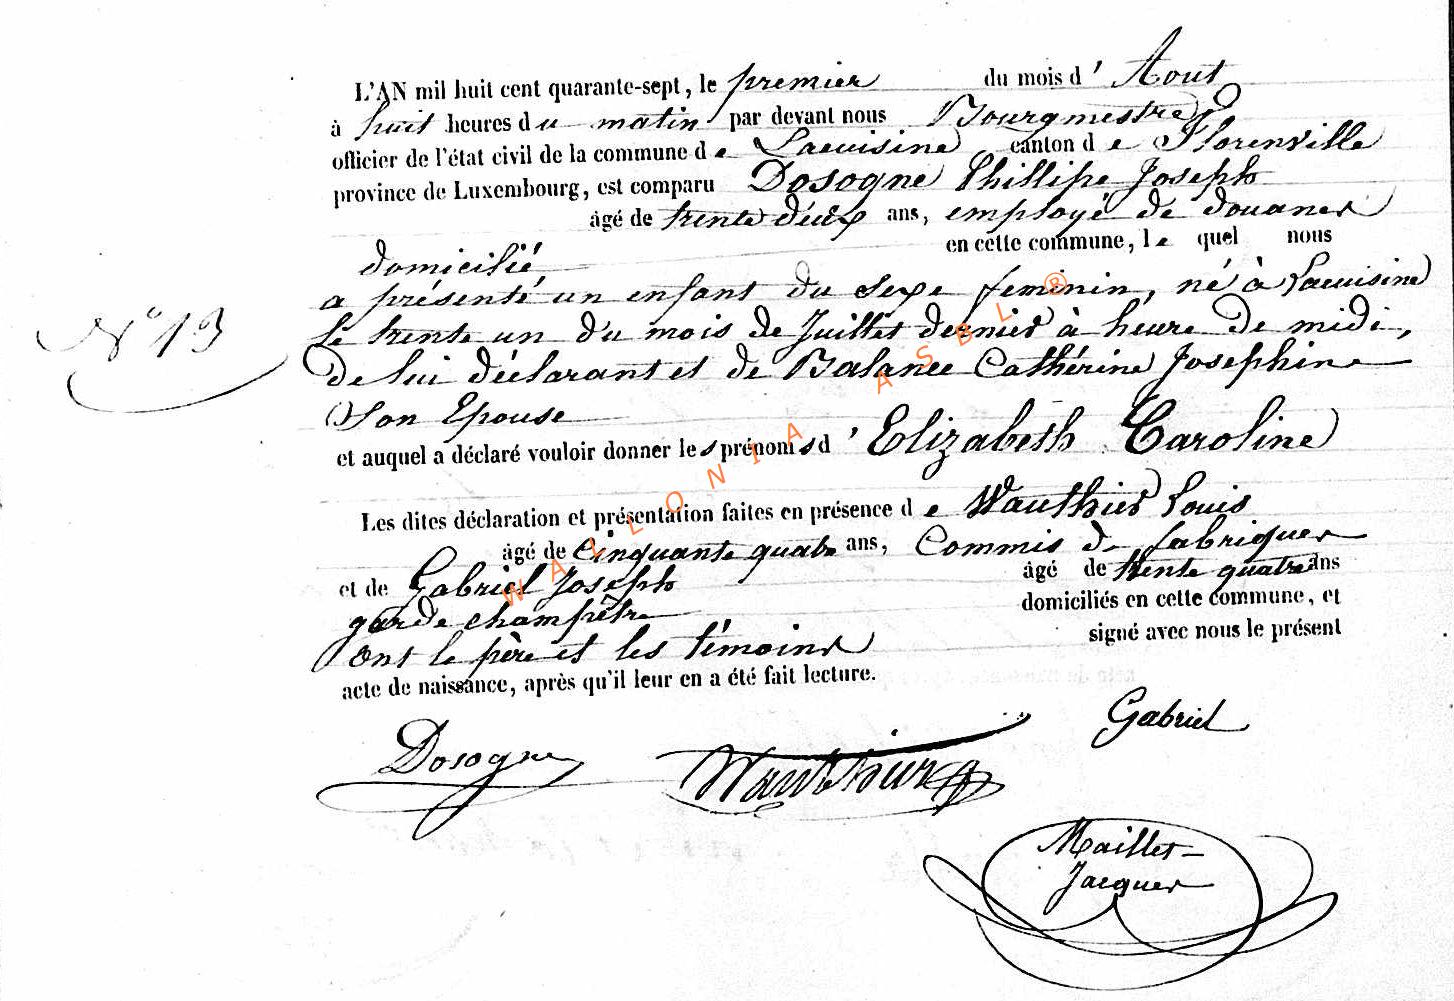 L'AN mil huit cent quarante-sept, le premier du mois d' Aout
à huit heures du matin par devant nous Bourgmestre
officier de l'état civil de la commune de Lacuisine canton de Florenville
province de Luxembourg, est comparu Dosogne Phillipe Joseph
âgé de trente deux ans, employé de douanes
domicilié, en cette commune, le quel nous
a présenté un enfant du sexe feminin, né à Lacuisine
Le trente un du mois de Juillet dernier à heure de midi,
N° 13
de lui déclarant et de Balance Cathérine Josephine
Son Epouse
et auquel a déclaré vouloir donner les prénoms d' Elizabeth Caroline
Les dites déclaration et présentation faites en présence de Wauthier Louis
âgé de Cinquante quatre ans, Commis de fabriques
et de Gabriel Joseph âgé de trente quatre ans
garde champêtre domiciliés en cette commune, et
ont le père et les témoins signé avec nous le présent
acte de naissance, après qu'il leur en a été fait lecture.
Gabriel
Dosogne
Maillet-
Jacques
WALLONIA ASBL ®